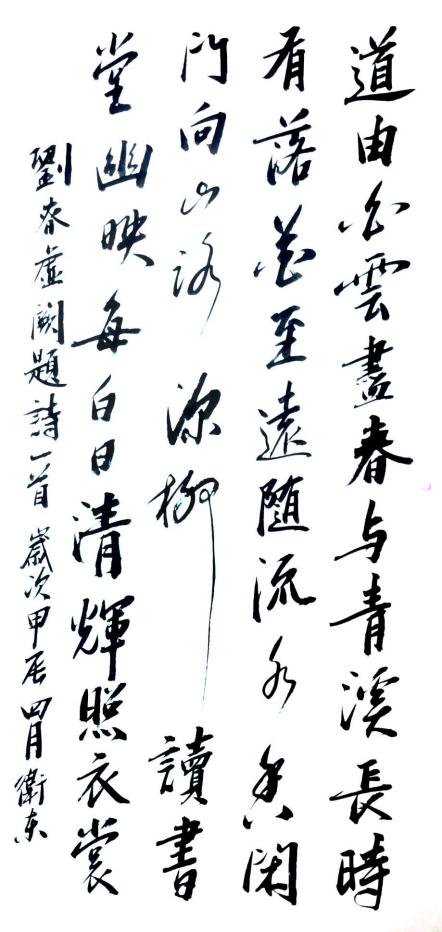 道由白雲盡春与青溪長時
有落花至遠随流水香閑
門向山路深柳讀書
堂幽映每白日清輝照衣裳
劉眘虛闕題詩一首歲次甲辰四月衛東